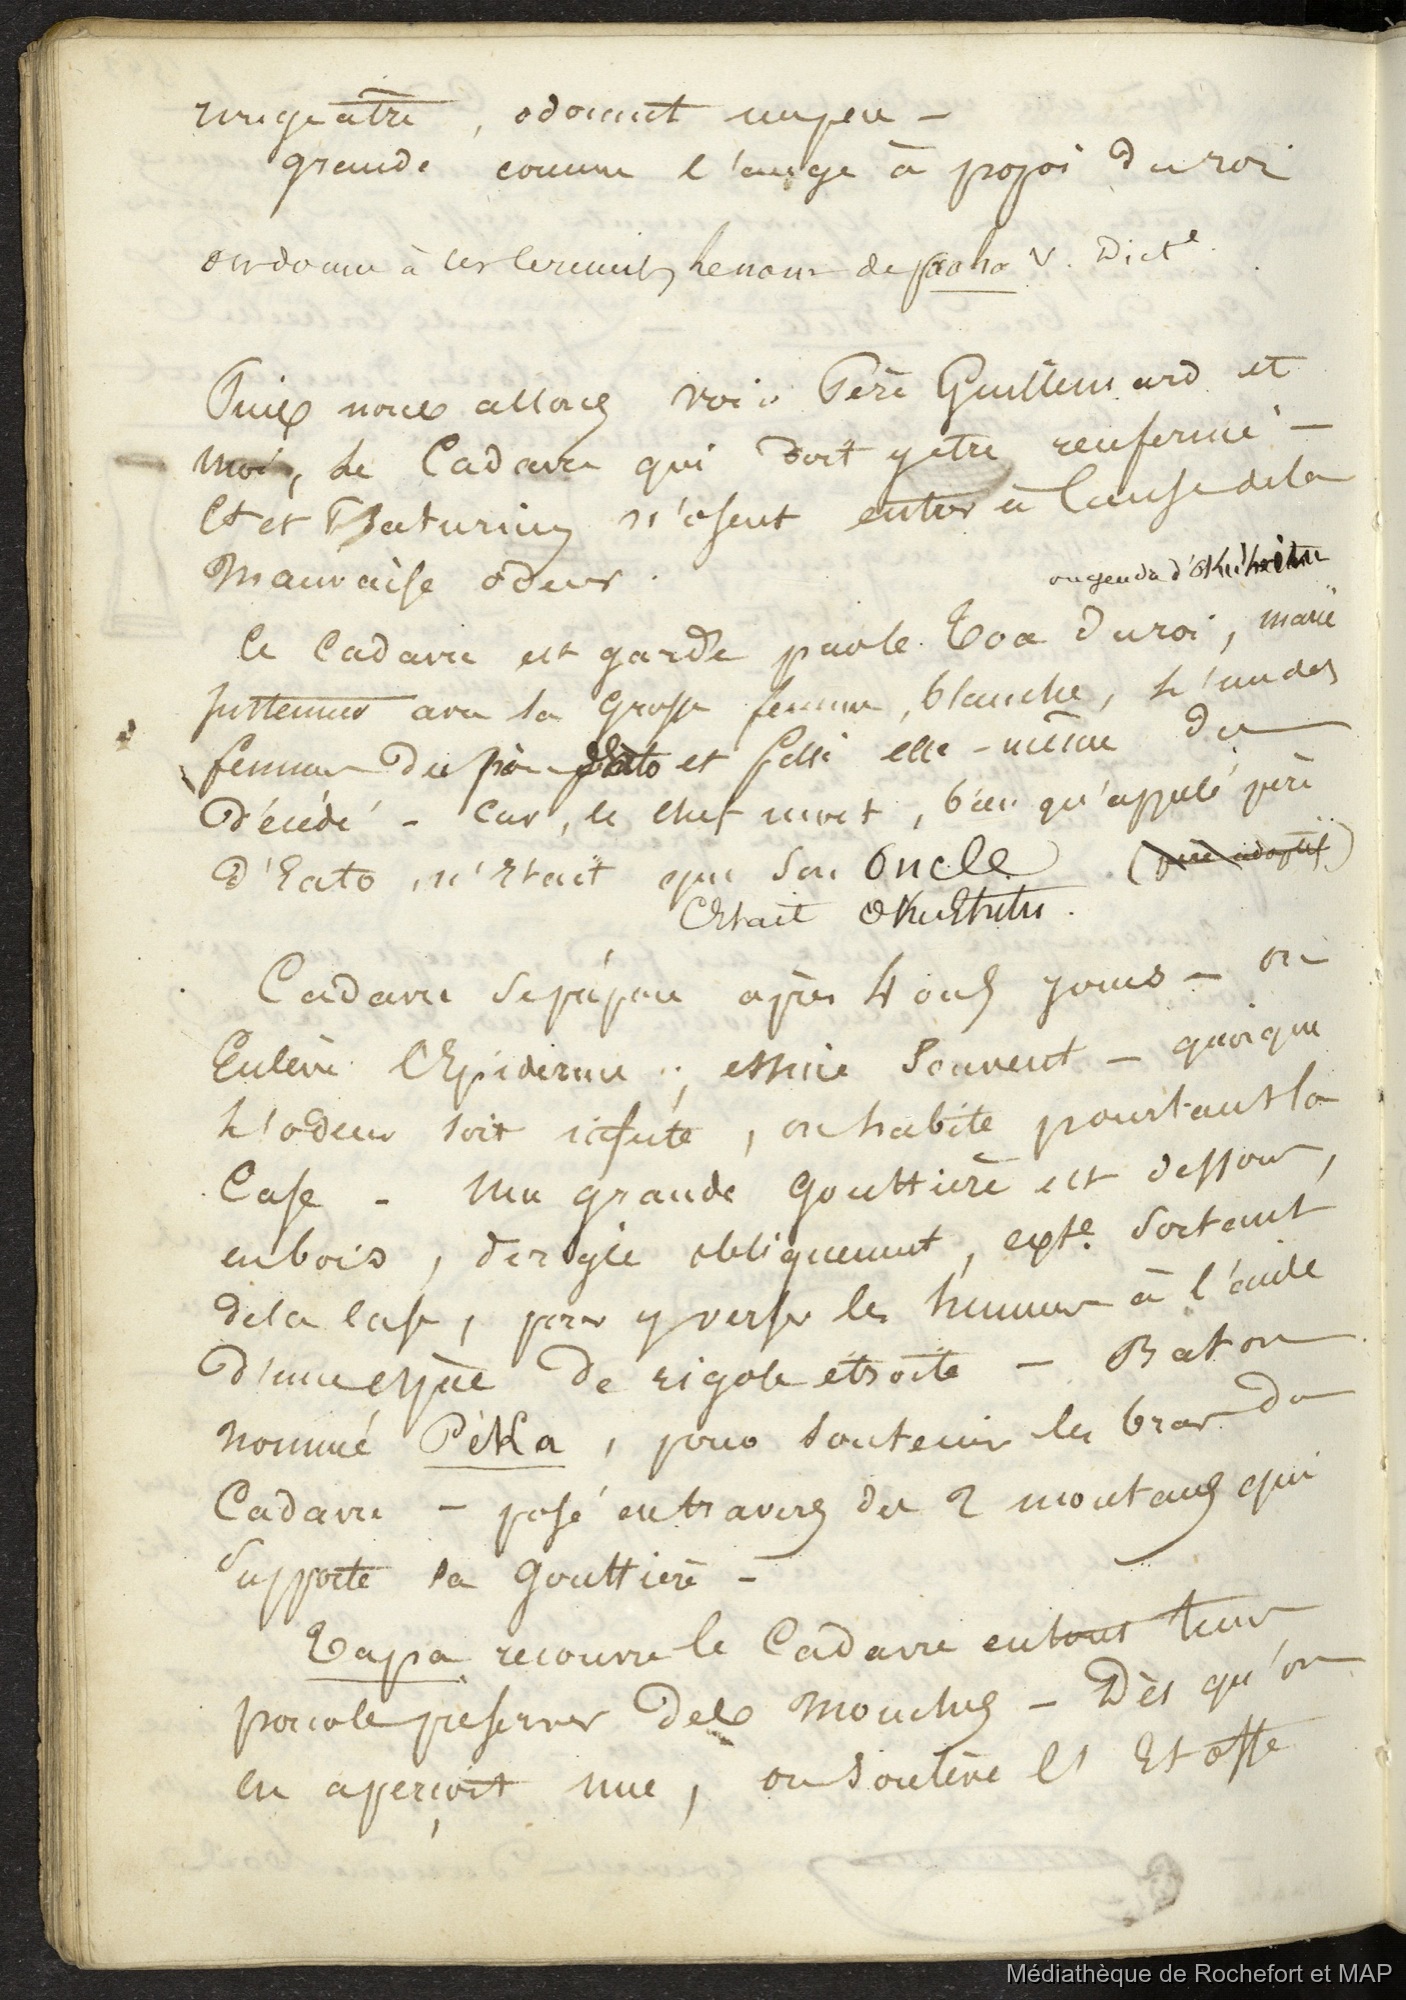 rougeâtre, odorant un peu —
grande comme l'auge à popoi du roi
on donne à ces cercueils le nom de paaha V. Dict.e
Puis nous allons voir Père Guillemard et
moi, le Cadavre qui doit y être renfermé —
et Mathurin n'osent entrer à Cause de la
mauvaise odeur.
ou gendre d'Okuhuitu
le Cadavre est gardé par le Toa du roi, marié
avec la Grosse femme, blanche, l'une des
femmes du père d'Eato et fille elle-même du
décédé — Car, le chef mort, bien qu'appelé père
d'Eato, n'était que Son Oncle (père adoptif)
C'était
Cadavre Se prépare après 4 ou 5 jours — on
Enlève l'Epiderme ; essuie Souvent — quoique
l'odeur soit infecte, on habite pourtant la
Case — une grande Gouttière est dessous,
en bois, dirigée obliquement, exte. Sortant
de la Case, pour y verser les humeurs à l'aide
d'une espèce de rigole étroite — Baton
nommé Péka, pour soutenir les bras du
Cadavre — posé entravers des 2 montans qui
Supporte la Gouttière —
Tapa recouvre le Cadavre en tout tems
pour le préserver des Mouches — Dès qu'on
en aperçoit une, on soulève l' Etoffe
Médiathèque de Rochefort et MAP